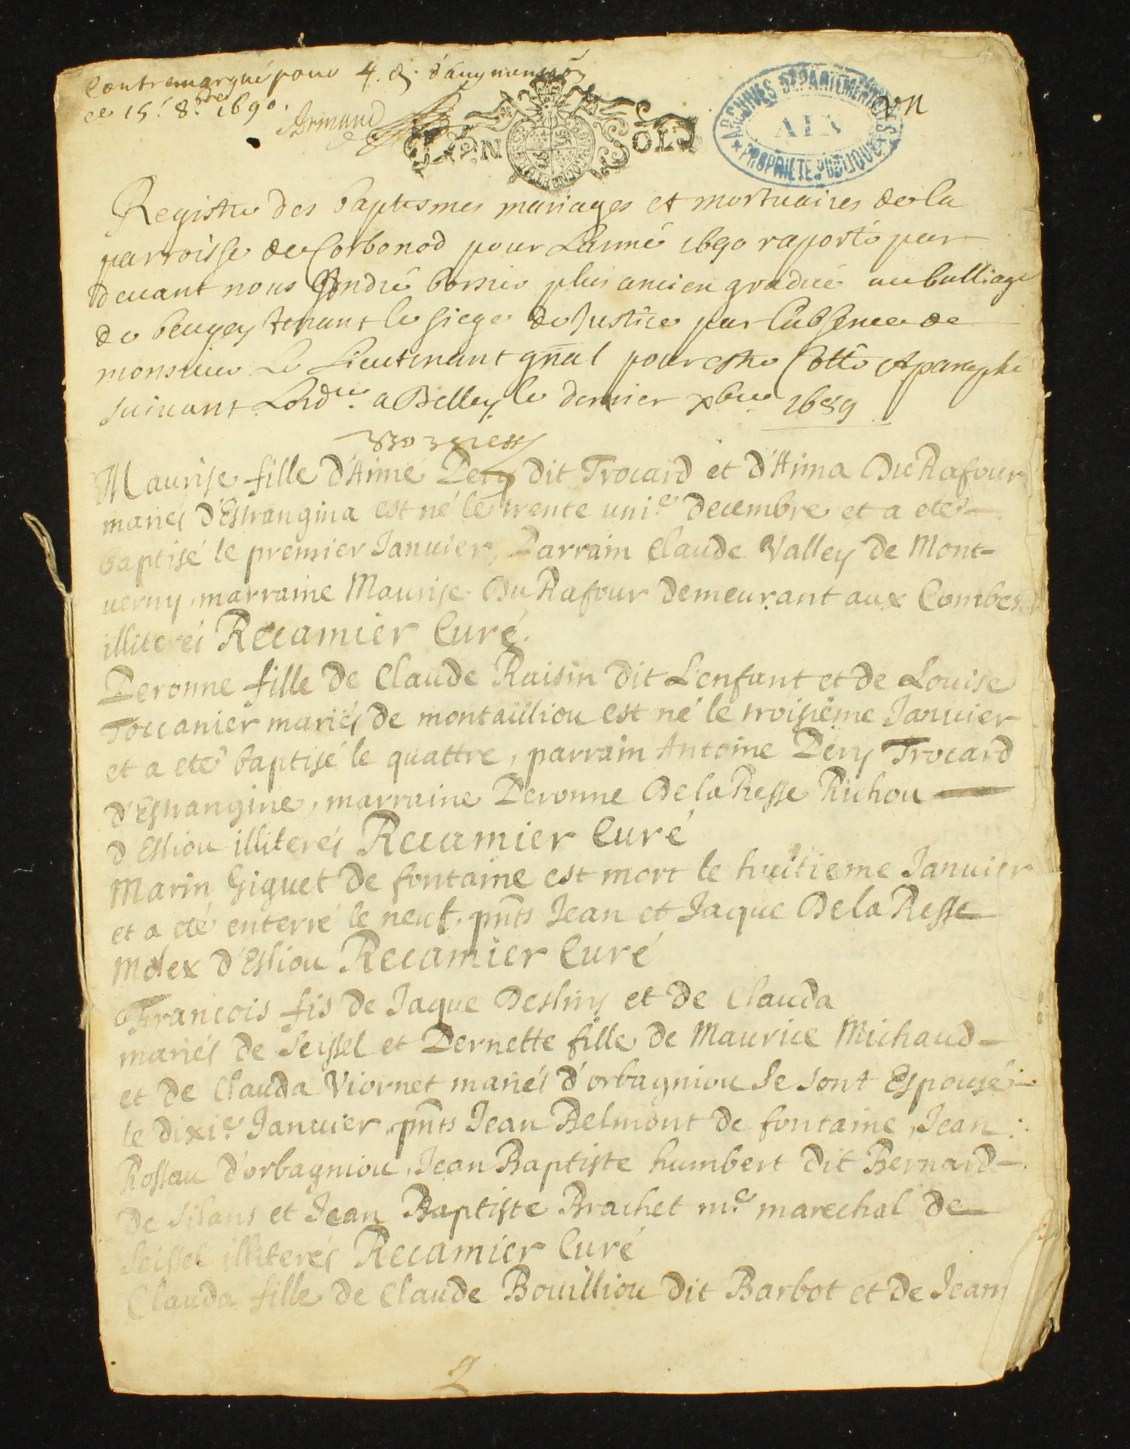 Contremarqué pour 4. d. d'augmentaon
ce 15.e 8.bre 1690.
Armand
UN SOL
ARCHIVES DEPARTEMENTALES
AIN
PROPRIETE PUBLIQUE
un
Registre des baptesmes mariages et mortuaires de la
parroisse de Corbonod pour Lanné 1690 raporté par
devant nous André bornier plus ancien gradué au balliage
de beugey tenant le siege de Justice par L'absence de
monsieur Le Lieutenant gñal pour estre Cotté et paraphé
suivant Lordce a Belley le dernier xbre 1689
Maurise fille d'Aimé Pery dit Trocard et d'Aima Du Rafour
mariés d'Estrangina est né le trente unie decembre et a eté
baptisé le premier Janvier, Parrain Claude Valley de Mont-
verny, marraine Maurise Du Rafour demeurant aux Combes
illiterés Recamier Curé.
Peronne fille de Claude Raisin dit L'enfant et de Louise
Toccanier mariés de montailliou est né le troisiéme Janvier
et a eté baptisé le quattre, parrain Antoine Pery Trocard
d'Estrangine, marraine Peronne De la Pesse Richou
d'Esliou illiterés Recamier Curé
Marin Giguet de fontaine est mort le huitieme Janvier
et a eté enterré le neuf, pñts Jean et Jaque De la Pesse
Molex d'Esliou Recamier Curé
Francois fis de Jaque et de Clauda
mariés de Seissel et Pernette fille de Maurice Michaud
et de Clauda Viornet mariés d'orbagniou se sont Espousé
le dixie Janvier, pñts Jean Belmont de fontaine, Jean
Rosseau d'orbagniou, Jean Baptiste humbert dit Bernard
de Silans et Jean Baptiste Brachet me marechal de
Seissel illiterés Recamier Curé
Clauda fille de Claude Bouilliou dit Barbot et de Jeam